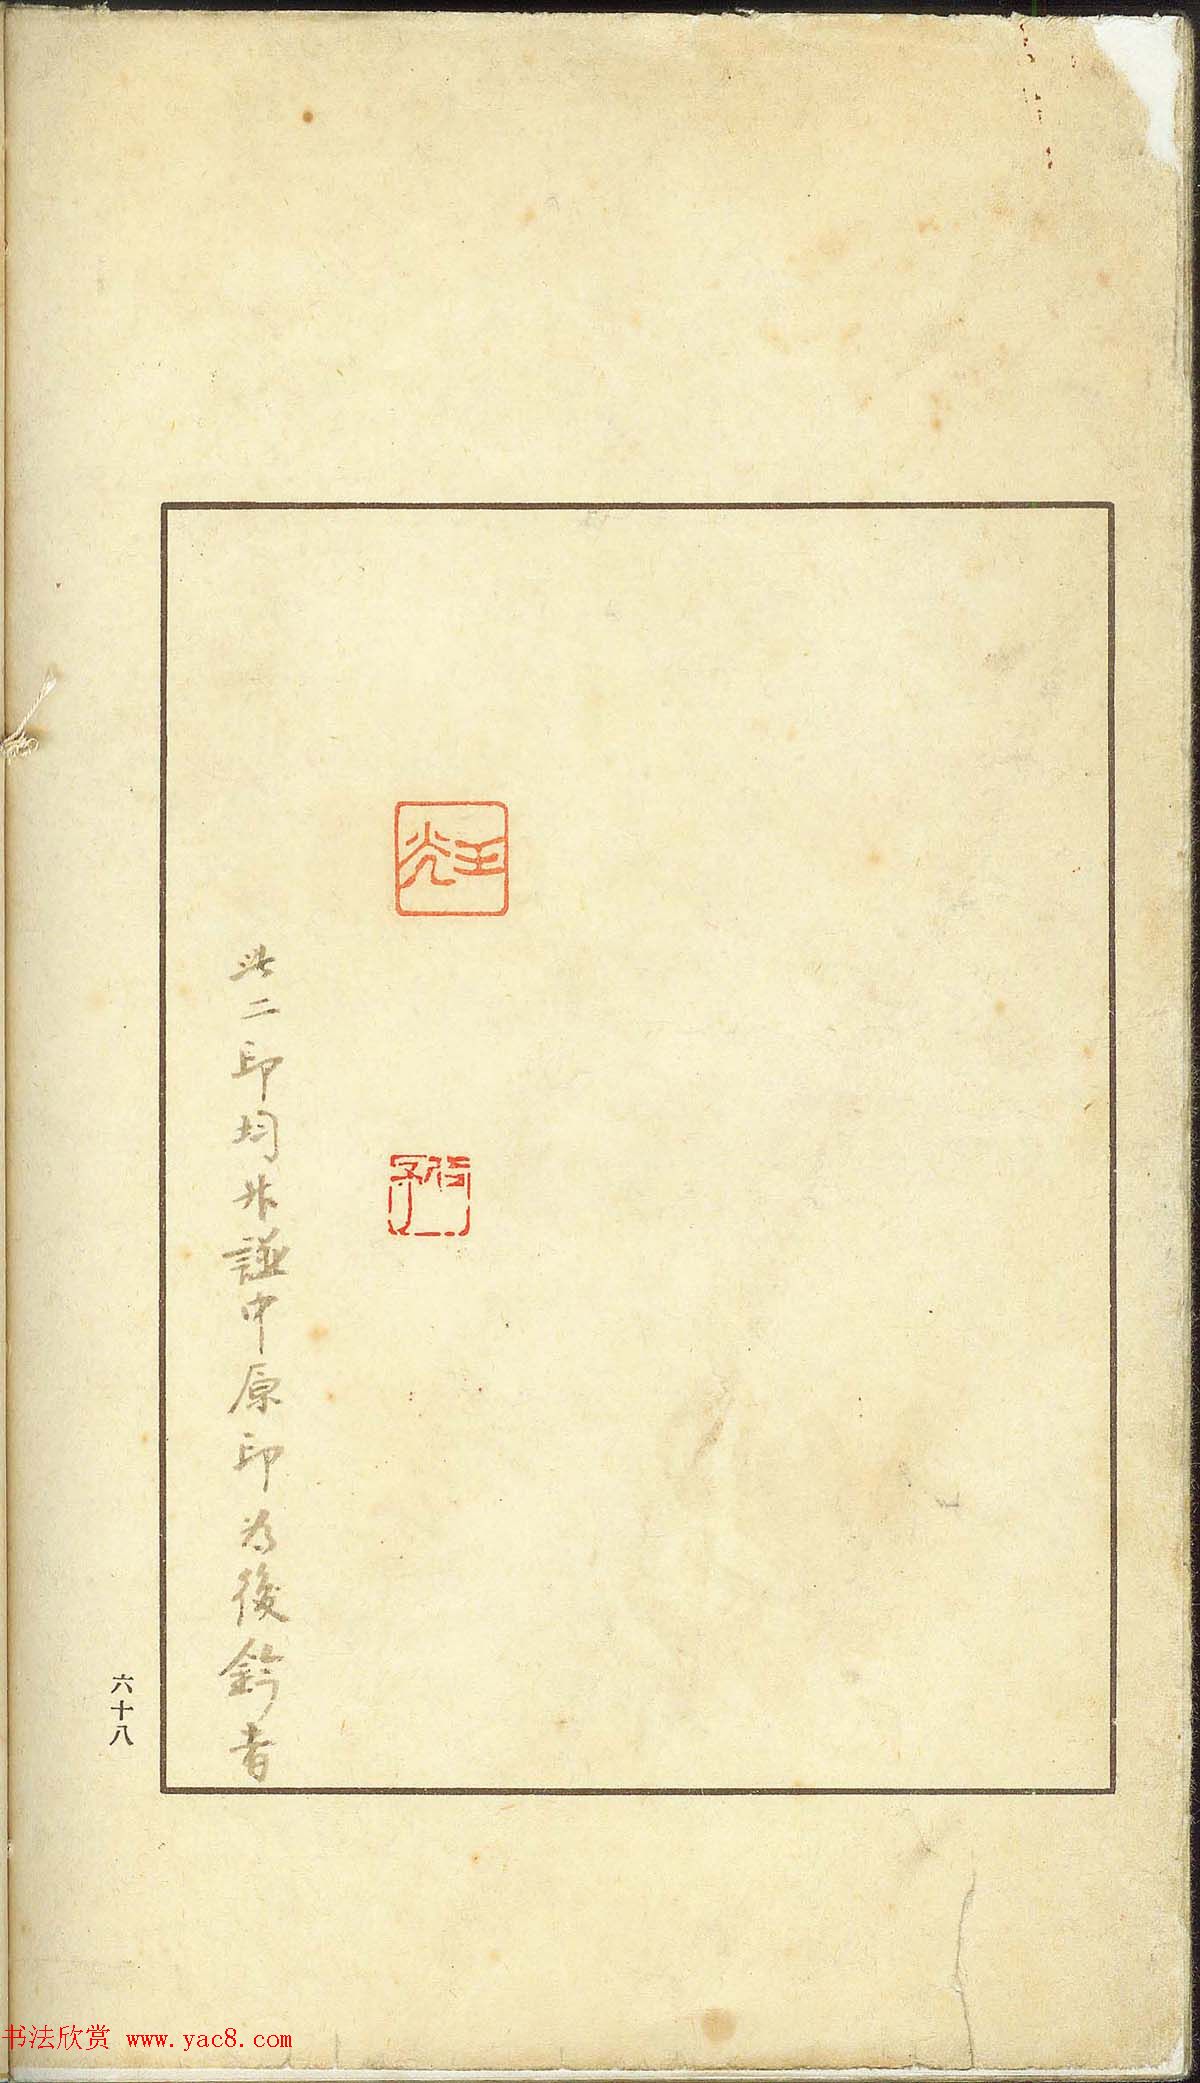 王光
此二印均非謹中原印為後鈐者
六十八
书法欣赏 www.yac8.com